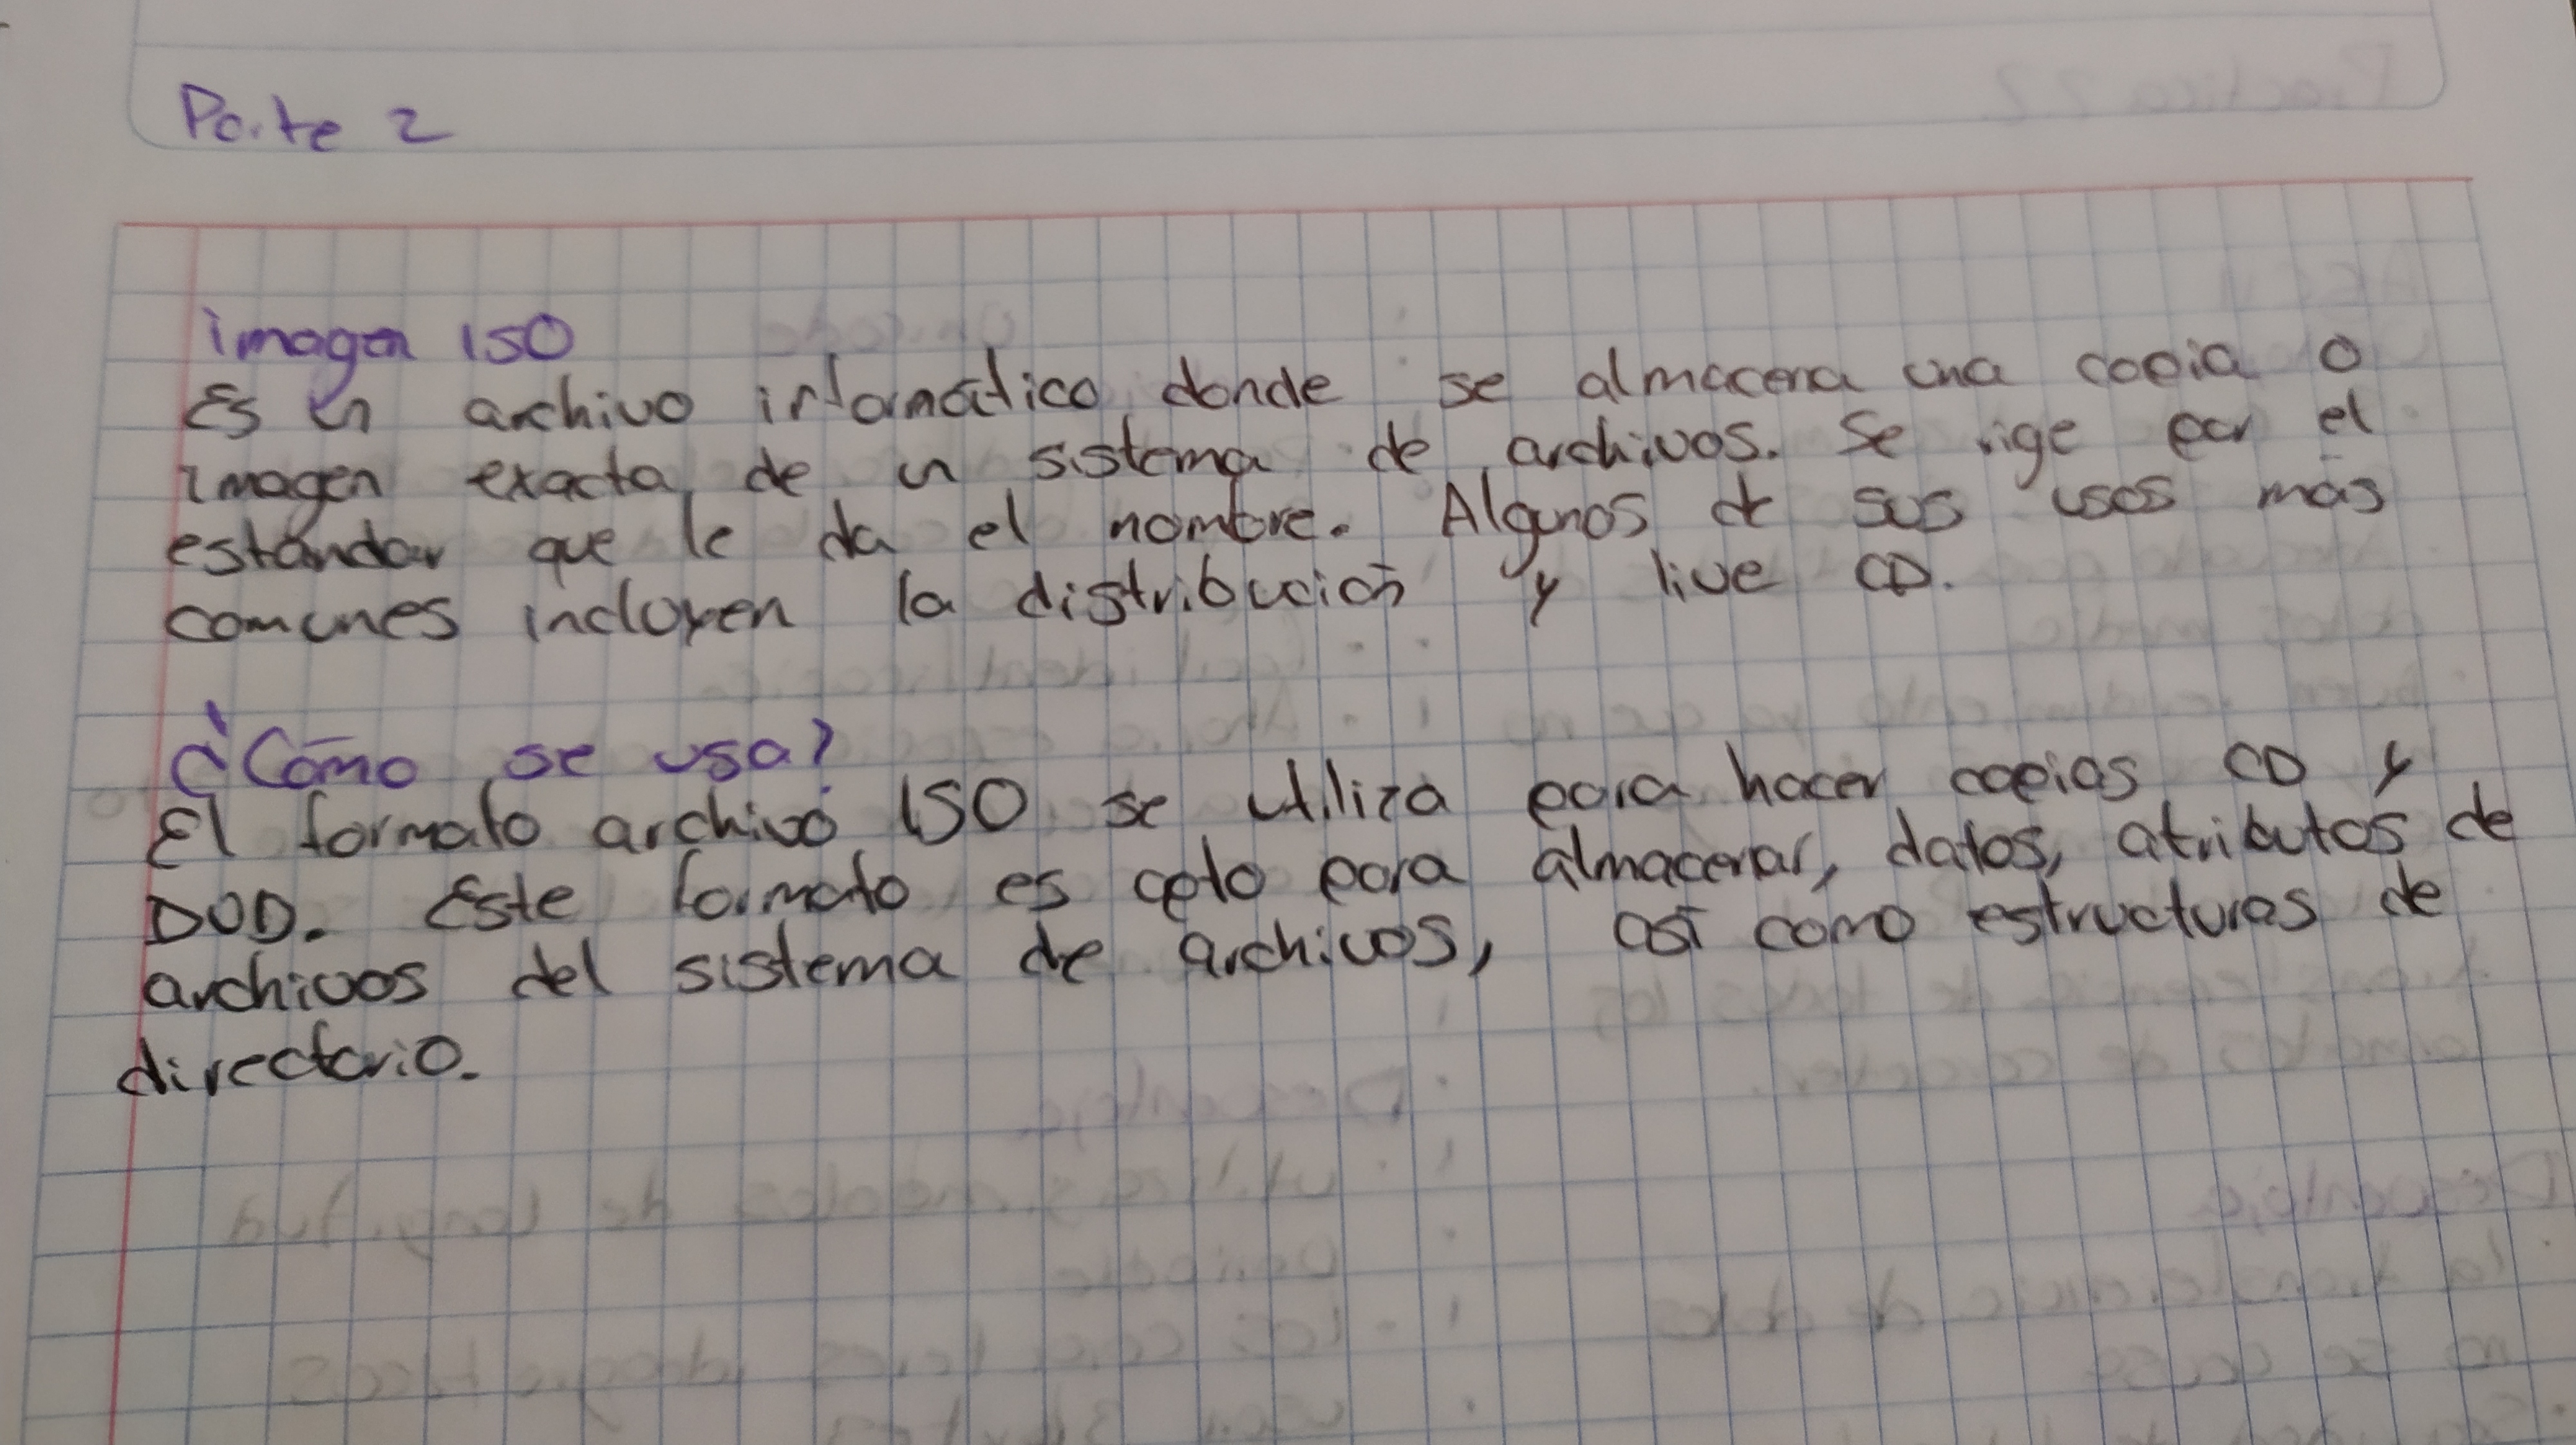 Parte 2
imagen ISO
Es un archivo informático donde se almacena una copia o
imagen exacta de un sistema de archivos. Se rige por el
estándar que le da el nombre. Algunos de sus usos más
comunes incluyen la distribución y live CD.
¿Cómo se usa?
El formato archivo ISO se utiliza para hacer copias CD y
DVD. Este formato es apto para almacenar, datos, atributos de
archivos del sistema de archivos, así como estructuras de
directorio.